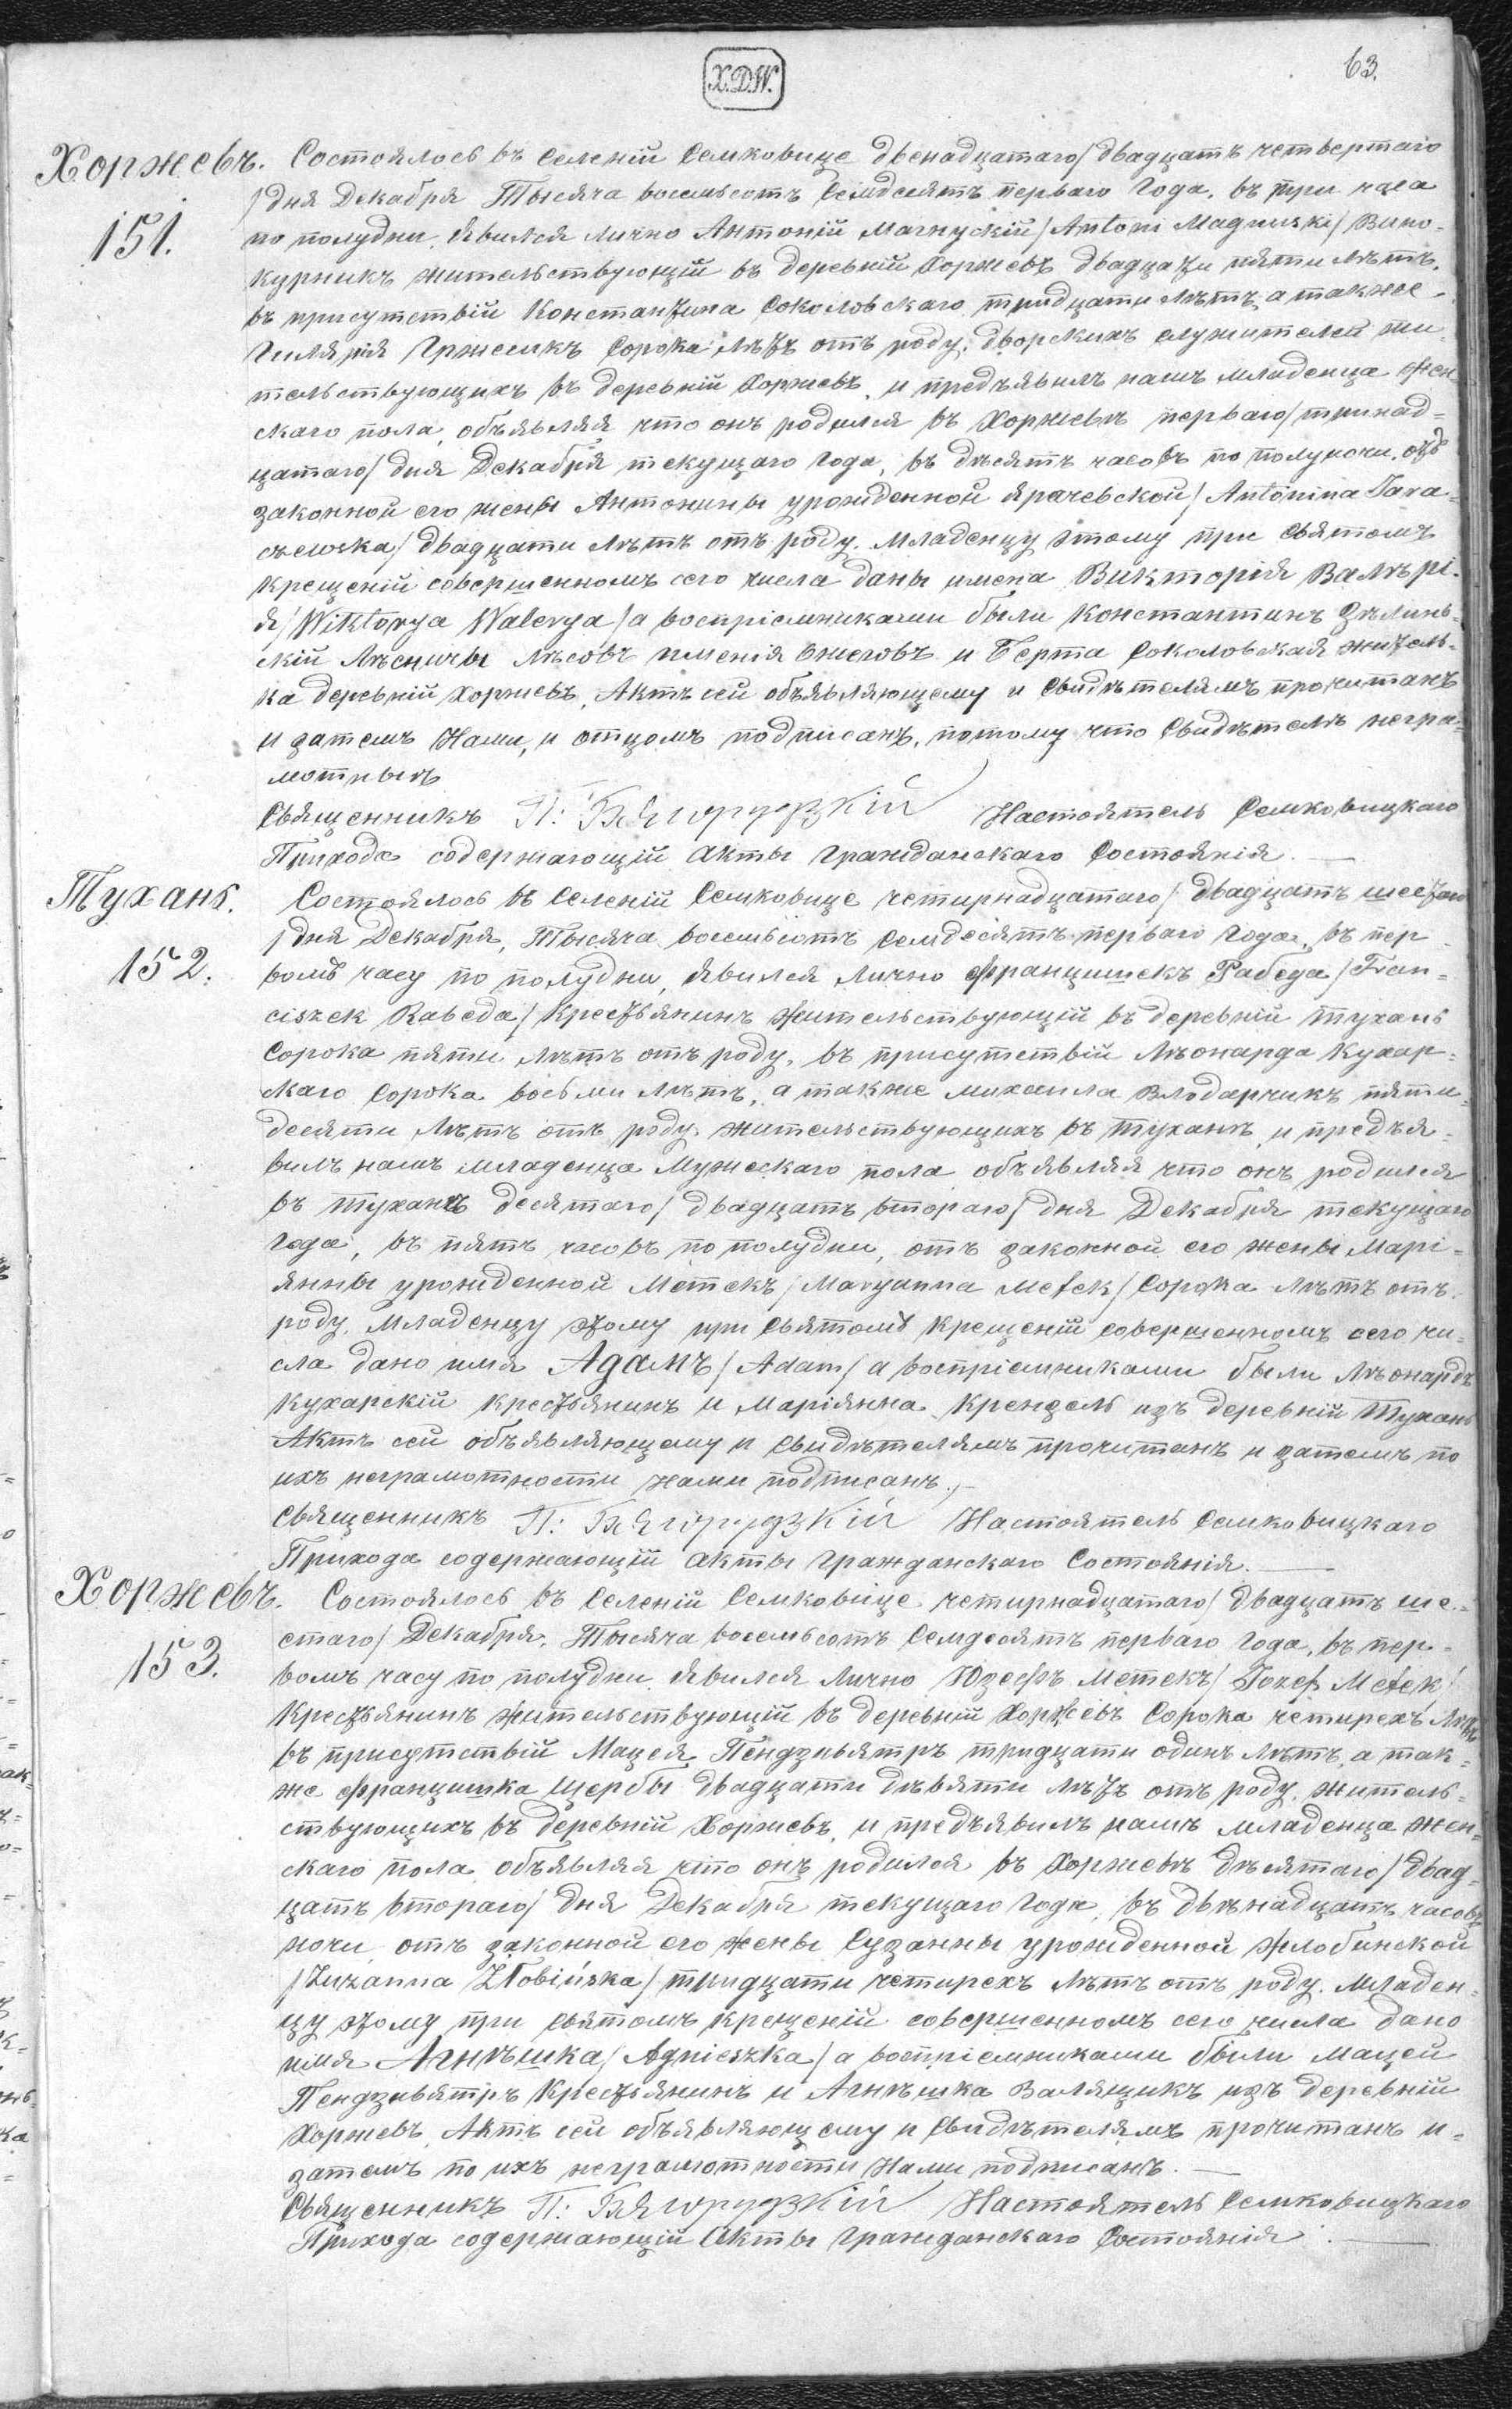 X.D.W.
63.
Хоржевъ. Состоялось въ селеній Семковице двенадцатаго/двадцать четвертаго
151.
/дня Декабря Тысяча восемьсотъ семдсятъ перваго года, въ три часа
по полудни, явился лично Антоній Магнускій /Antoni Magnuski/ Вино-
курникъ жительствующій въ деревній Хоржевъ двадцати пяти лѣтъ,
въ присутствій Константина Соколовскаго тридцати лѣтъ, а также
Гилярія Гржесикъ сорока лѣтъ отъ роду, дворскихъ служителей жи-
тельствующихъ въ деревній Хоржевъ, и предъявилъ намъ младенца жен
скаго пола, объявляя что онъ родился въ Хоржевѣ перваго/тринад=
цатаго/ дня Декабря текущаго года, въ дѣсять часовъ по полуночи, отъ
законной его жены Антонины урожденной Ярачевской /Antonina Jara=
czewska/ двадцати лѣтъ отъ роду. Младенцу этому при святомъ
крещеній совершенномъ сего числа даны имена Викторія Валѣрі-
я /Wiktorya Walerya/ а воспріемниками были Константинъ Зѣлинь-
скій Лѣсничы лѣсовъ именія и Берта Соколовская житель-
ка деревній Хоржевъ, Актъ сей объявляющему и свидѣтелямъ прочитанъ
и затемъ Нами, и отцомъ подписанъ, потому что свидѣтелѣ негра=
мотныѣ
Священникъ П: Настоятель Семковицкаго
Прихода содержающій акты гражданскаго состоянія.
Тухань. Состоялось въ селеній Семковице четирнадцатаго/ двадцать шестаго
152.
/дня Декабря, Тысяча восемьсотъ семдесятъ перваго года, въ пер-
вомъ часу по полудни, явился лично Францишекъ Рабеда /Fran=
ciszek Rabeda/ крестьянинъ жительствующій въ деревній Тухань
сорока пяти лѣтъ отъ роду, въ присутствій Лѣонарда Кухар=
скаго сорока восьми лѣтъ, а также Михаила Влодарчикъ пяти=
десяти лѣтъ отъ роду, жительствующихъ въ Туханѣ, и предъя=
вилъ намъ младенца Мужескаго пола объявляя что онъ родился
въ Туханѣ десятаго/ двадцать втораго/ дня Декабря текущаго
года, въ пять часовъ по полудни, отъ законной его жены Марі=
янны урожденной Метекъ /Maryanna Metek/ сорока лѣтъ отъ
роду, Младенцу этому при святомъ крещеній совершенномъ сего чи=
сла дано имя Адамъ /Adam/ а воспріемниками были Лѣонардъ
Кухарскій крестьянинъ и Маріянна Крендзель изъ деревній Тухань
Актъ сей объявляющему и свидѣтелямъ прочитанъ и затемъ по
ихъ неграмотности нами подписанъ.
Священникъ П: Настоятель Семковицкаго
Прихода содержающій акты гражданскаго состоянія.
Хоржевъ. Состоялось въ селеній Семковице четирнадцатаго/ двадцать ше=
153.
стаго/ Декабря, Тысяча восемьсотъ семдесятъ перваго года, въ пер=
вомъ часу по полудни, явился лично Юзефъ Метекъ /Jozef Metek/
крестьянинъ жительствующій въ деревній Хоржевъ сорока четирехъ лѣтъ
въ присутствій Мацея Пендзивятръ тридцати одинъ лѣтъ, а так=
же Францишка Щербы двадцати дѣвяти лѣтъ отъ роду, житель=
ствующихъ въ деревній Хоржевъ, и предъявилъ намъ младенца жен=
скаго пола, объявляя что онъ родился въ Хоржевѣ дѣсятаго/ двад=
цать втораго/ дня Декабря текущаго года, въ двѣнадцать часовъ
ночи, отъ законной его жены Сузанны урожденной Жлобинской
/Zuzanna Żłobińska/ тридцати четирехъ лѣтъ отъ роду. Младен=
цу этому при святомъ крещеній совершенномъ сего числа дано
имя Агнѣшка /Agnieszka/ а воспріемниками были Мацей
Пендзивятръ крестьянинъ и Агнѣшка Валящикъ изъ деревній
Хоржевъ, Актъ сей объявляющему и свидѣтелямъ прочитанъ и=
затемъ по ихъ неграмотности Нами подписанъ.
Священникъ П: Настоятель Семковицкаго
Прихода содержающій Акты гражданскаго состоянія.